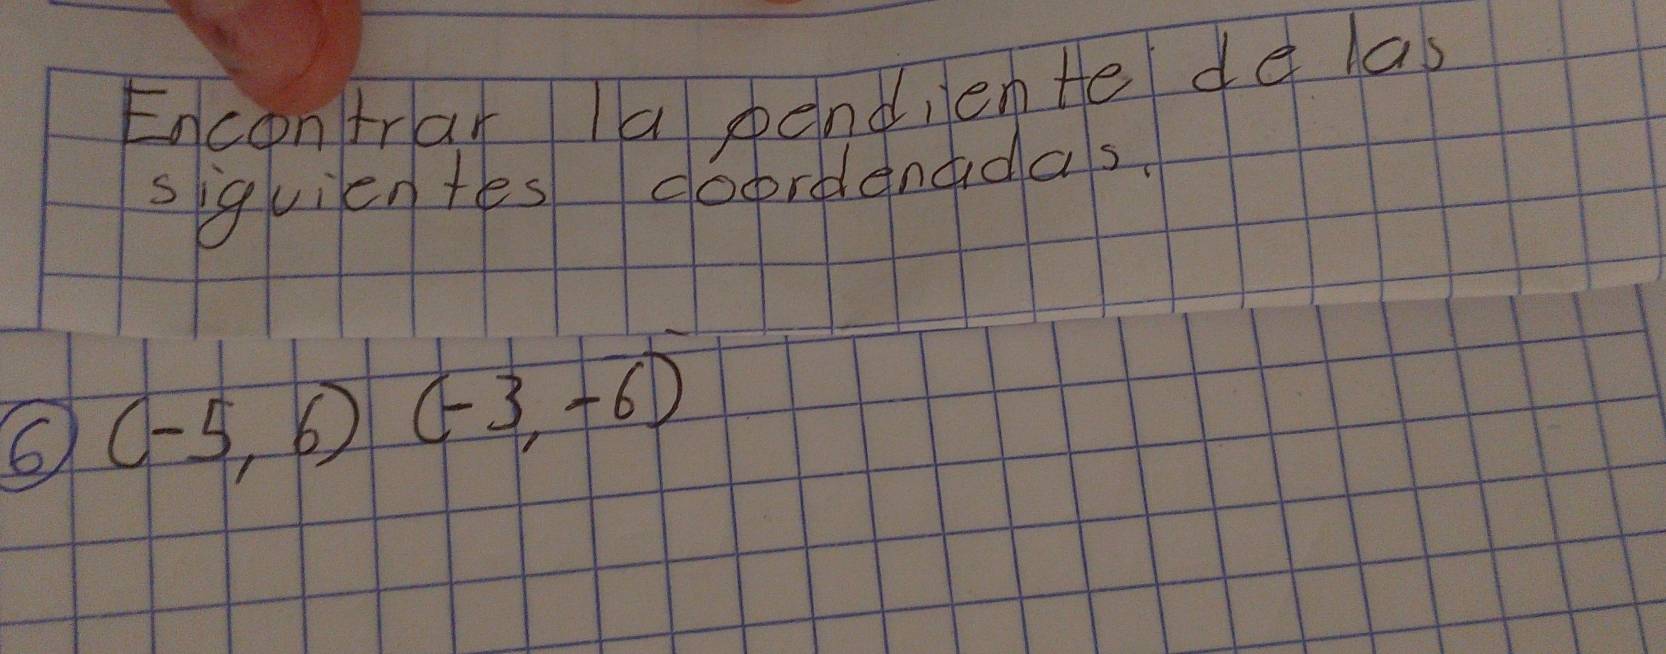 Encontrar la pendiente de las
siguientes coordenadas.
6 (-5, 6) (-3, -6)